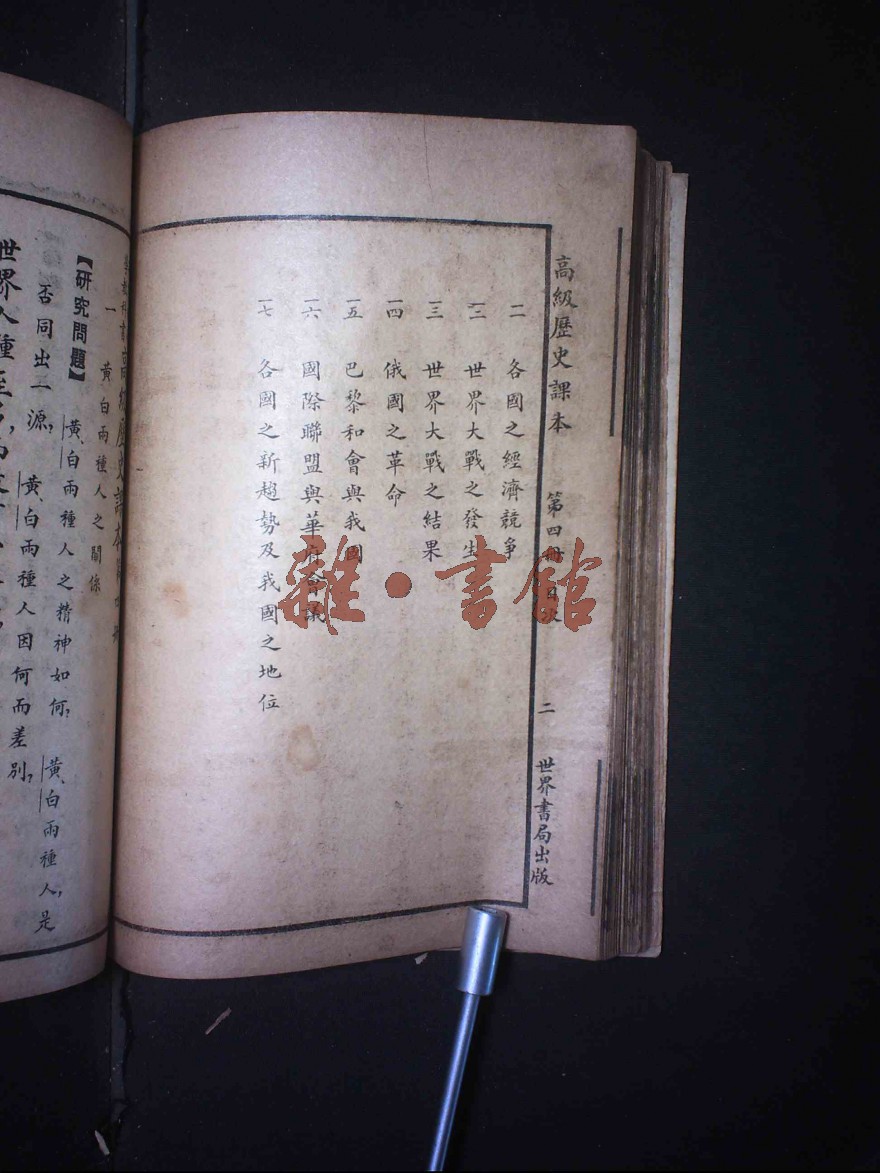 高級歷史課本 第四冊 目次 二 世界書局出版
一一 各國之經濟競爭
一二 世界大戰之發生
一三 世界大戰之結果
一四 俄國之革命
一五 巴黎和會與我國
一六 國際聯盟與華府會議
一七 各國之新趨勢及我國之地位
雜·書館
高級歷史課本
一 黃白兩種人之關係
【研究問題】 黃、白兩種人之精神如何？ 黃、白兩種人，是
否同出一源？ 黃、白兩種人因何而差別？
世界人種